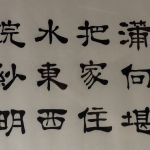 蒲向堪
把家住
水東西
浣紗明